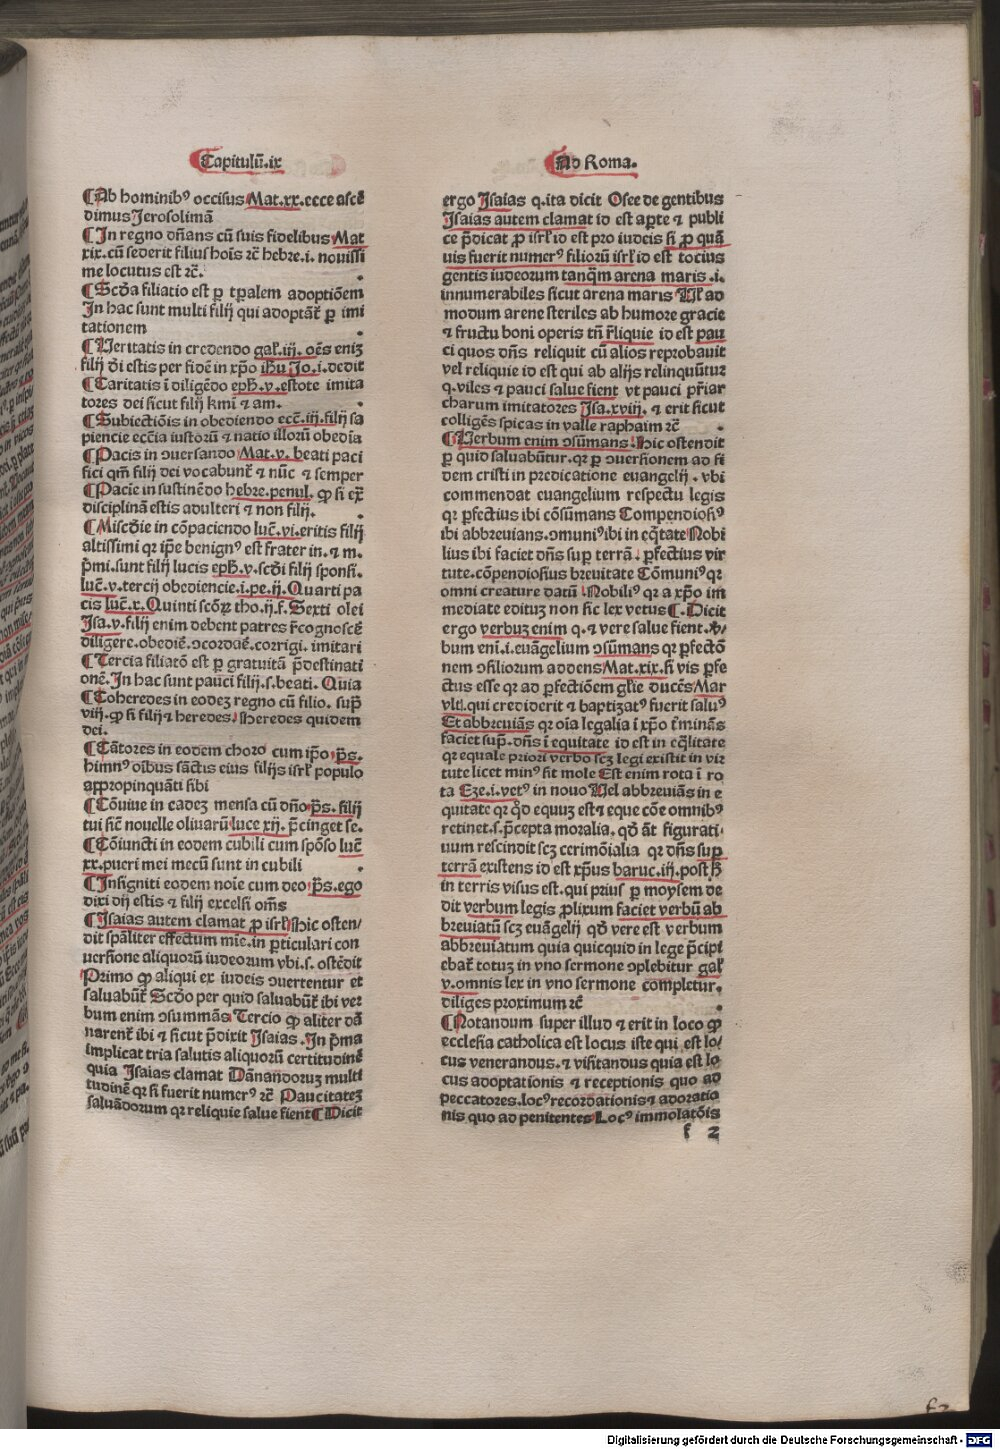 Capitulū.ix
Ad Roma.
¶Ab hominibꝰ occisus Mat.xx.ecce ascē
dimus Jerosolimā
¶In regno dn̄ans cū suis fidelibus Mat
xix.cū sederit filius hoīs rc̄ hebre.i. nouissi
me locutus est rc̄.
¶Scd̄a filiatio est ꝑ tꝑalem adoptiōem
In hac sunt multi filij qui adoptāt̄ ꝑ imi
tationem
¶Ueritatis in credendo gal̄.iij. oēs eniꝫ
filij dī estis per fidē in xp̄o ih̄u Jo.i.dedit
¶Caritatis ī diligēdo eph̄.v.estote imita
tores dei sicut filij kmī ⁊ am.
¶Subiectiōis in obediendo ecc̄.iij.filij sa
piencie ecc̄ia iustorū ⁊ natio illorū obedīa
¶Pacis in ↄuersando Mat.v. beati paci
fici qm̄ filij dei vocabunt̄ ⁊ nūc ⁊ semper
¶Pacie in sustinēdo hebre.penul. ꝙ si ex̄
disciplinā estis adulteri ⁊ non filij.
¶Misc̄die in cōpaciendo luc̄.vi.eritis filij
altissimi qr ip̄e benignꝰ est frater in.⁊ m.
p̄mi.sunt filij lucis eph̄.v.scd̄i filij sponsi.
luc̄.v.tercij obediencie.i.pe.ij.Quarti pa
cis luc̄.x.Quinti scōꝝ tho.ij.f.Sexti olei
Isa.v.filij enim debent patres r̄cognoscē
diligere.obediē.ↄcordaē.corrigi.imitari
¶Tercia filiatō est ꝑ gratuitā p̄destinati
onē.In hac sunt pauci filij.s.beati. Quia
¶Coheredes in eodeꝫ regno cū filio. sup̄
viij.ꝙ si filij ⁊ heredes. heredes quidem
dei.
¶Cātores in eodem choro cum ip̄o p̄s.
himnꝰ oībus sāctis eius filijs isrl̄ populo
appropinquāti sibi
¶Cōuiue in cadeꝫ mensa cū dn̄o p̄s. filij
tui sic̄ nouelle oliuarū luce xij. p̄cinget se.
¶Cōiuncti in eodem cubili cum spōso luc̄
xx.pueri mei mecū sunt in cubili
¶Insigniti eodem noīe cum deo p̄s.ego
dixi dij estis ⁊ filij excelsi om̄s
¶Isaias autem clamat ꝓ isrl̄ Hic osten/
dit spāliter effectum mie.in ꝑticulari con
uersione aliquorū iudeorum vbi.s. ostēdit
Primo ꝙ aliqui ex iudeis ↄuertentur et
saluabūt̄ Scd̄o per quid saluabūt̄ ibi ver
bum enim ↄsummās Tercio ꝙ aliter dā
narent̄ ibi ⁊ sicut p̄dixit Isaias .In p̄ma
implicat tria salutis aliquorū certitudinē
quia Isaias clamat Dānandoruꝫ multi
tudinē qr si fuerit numerꝰ rc̄ Paucitateꝫ
saluādorum qr reliquie salue fient ¶Dicit
ergo Isaias q.ita dicit Osee de gentibus
Isaias autem clamat id est aꝑte ⁊ publi
ce p̄dicat ꝓ isrl̄ id est pro iudeis si ꝓ quā
uis fuerit numerꝰ filiorū isrl̄ id est tocius
gentis iudeorum tanq̄m arena maris .i.
innumerabiles sicut arena maris Ul̄ ad
modum arene steriles ab humore gracie
⁊ fructu boni operis tn̄ r̄liquie id est pau
ci quos dn̄s reliquit cū alios reprobauit
vel reliquie id est qui ab alijs relinquūtur
q.viles ⁊ pauci salue fient vt pauci pr̄iar
charum imitatores Isa.xviij. ⁊ erit sicut
colligēs spicas in valle raphaim rc̄
¶Uerbum enim ↄsūmans Hic ostendit
ꝑ quid saluabūtur.qr ꝑ ↄuersionem ad fi
dem cristi in predicatione euangelij . vbi
commendat euangelium respectu legis
qr ꝑfectius ibi cōsūmans Compendiosiꝰ
ibi abbreuians.ↄmuniꝰ ibi in eq̄tate Nobi
lius ibi faciet dn̄s suꝑ terrā. ꝑfectius vir
tute.cōpendiosius breuitate Cōmuniꝰ qr
omni creature datū Nobiliꝰ qr a xp̄o im
mediate edituꝫ non sic lex vetus ¶.Dicit
ergo verbuꝫ enim q.⁊ vere salue fient.ver
bum eni.i.euāgelium ↄsūmans qr ꝑfectō
nem ↄsiliorum addens Mat.xix.si vis ꝑfe
ctus esse qr ad ꝑfectiōem gl̄ie ducēs Mar
vltī.qui crediderit ⁊ baptizatꝰ fuerit saluꝰ
Et abbreuiās qr oīa legalia ī xp̄o t̄minās
faciet sup̄.dn̄s ī equitate id est in eq̄litate
qr equale priori verbo scꝫ legi existit in vir
tute licet minꝰ sit mole Est enim rota ī ro
ta Eze.i.vetꝰ in nouo Uel abbreuiās in e
quitate qr qd̄ equuꝫ est ⁊ eque cōe omnibꝰ
retinet.s.p̄cepta moralia. qd̄ āt figurati/
uum rescindit scꝫ cerimōialia qr dn̄s suꝑ
terrā existens id est xp̄us baruc.iij.post h̄
in terris visus est.qui prius ꝑ moysem de
dit verbum legis ꝓlixum faciet verbū ab
breuiatū scꝫ euāgelij qd̄ vere est verbum
abbreuiatum quia quicquid in lege p̄cipi
ebat̄ totuꝫ in vno sermone ↄplebitur gal̄
v.omnis lex in vno sermone completur.
diliges proximum rc̄
¶Notandum super illud ⁊ erit in loco ꝙ
ecclesia catholica est locus iste qui est lo/
cus venerandus.⁊ visitandus quia est lo
cus adoptationis ⁊ receptionis quo ad
peccatores.locꝰ recordationis ⁊ adoratio
nis quo ad penitentes Locꝰ immolatōis
f 2
f2
Digitalisierung gefördert durch die Deutsche Forschungsgemeinschaft - DFG